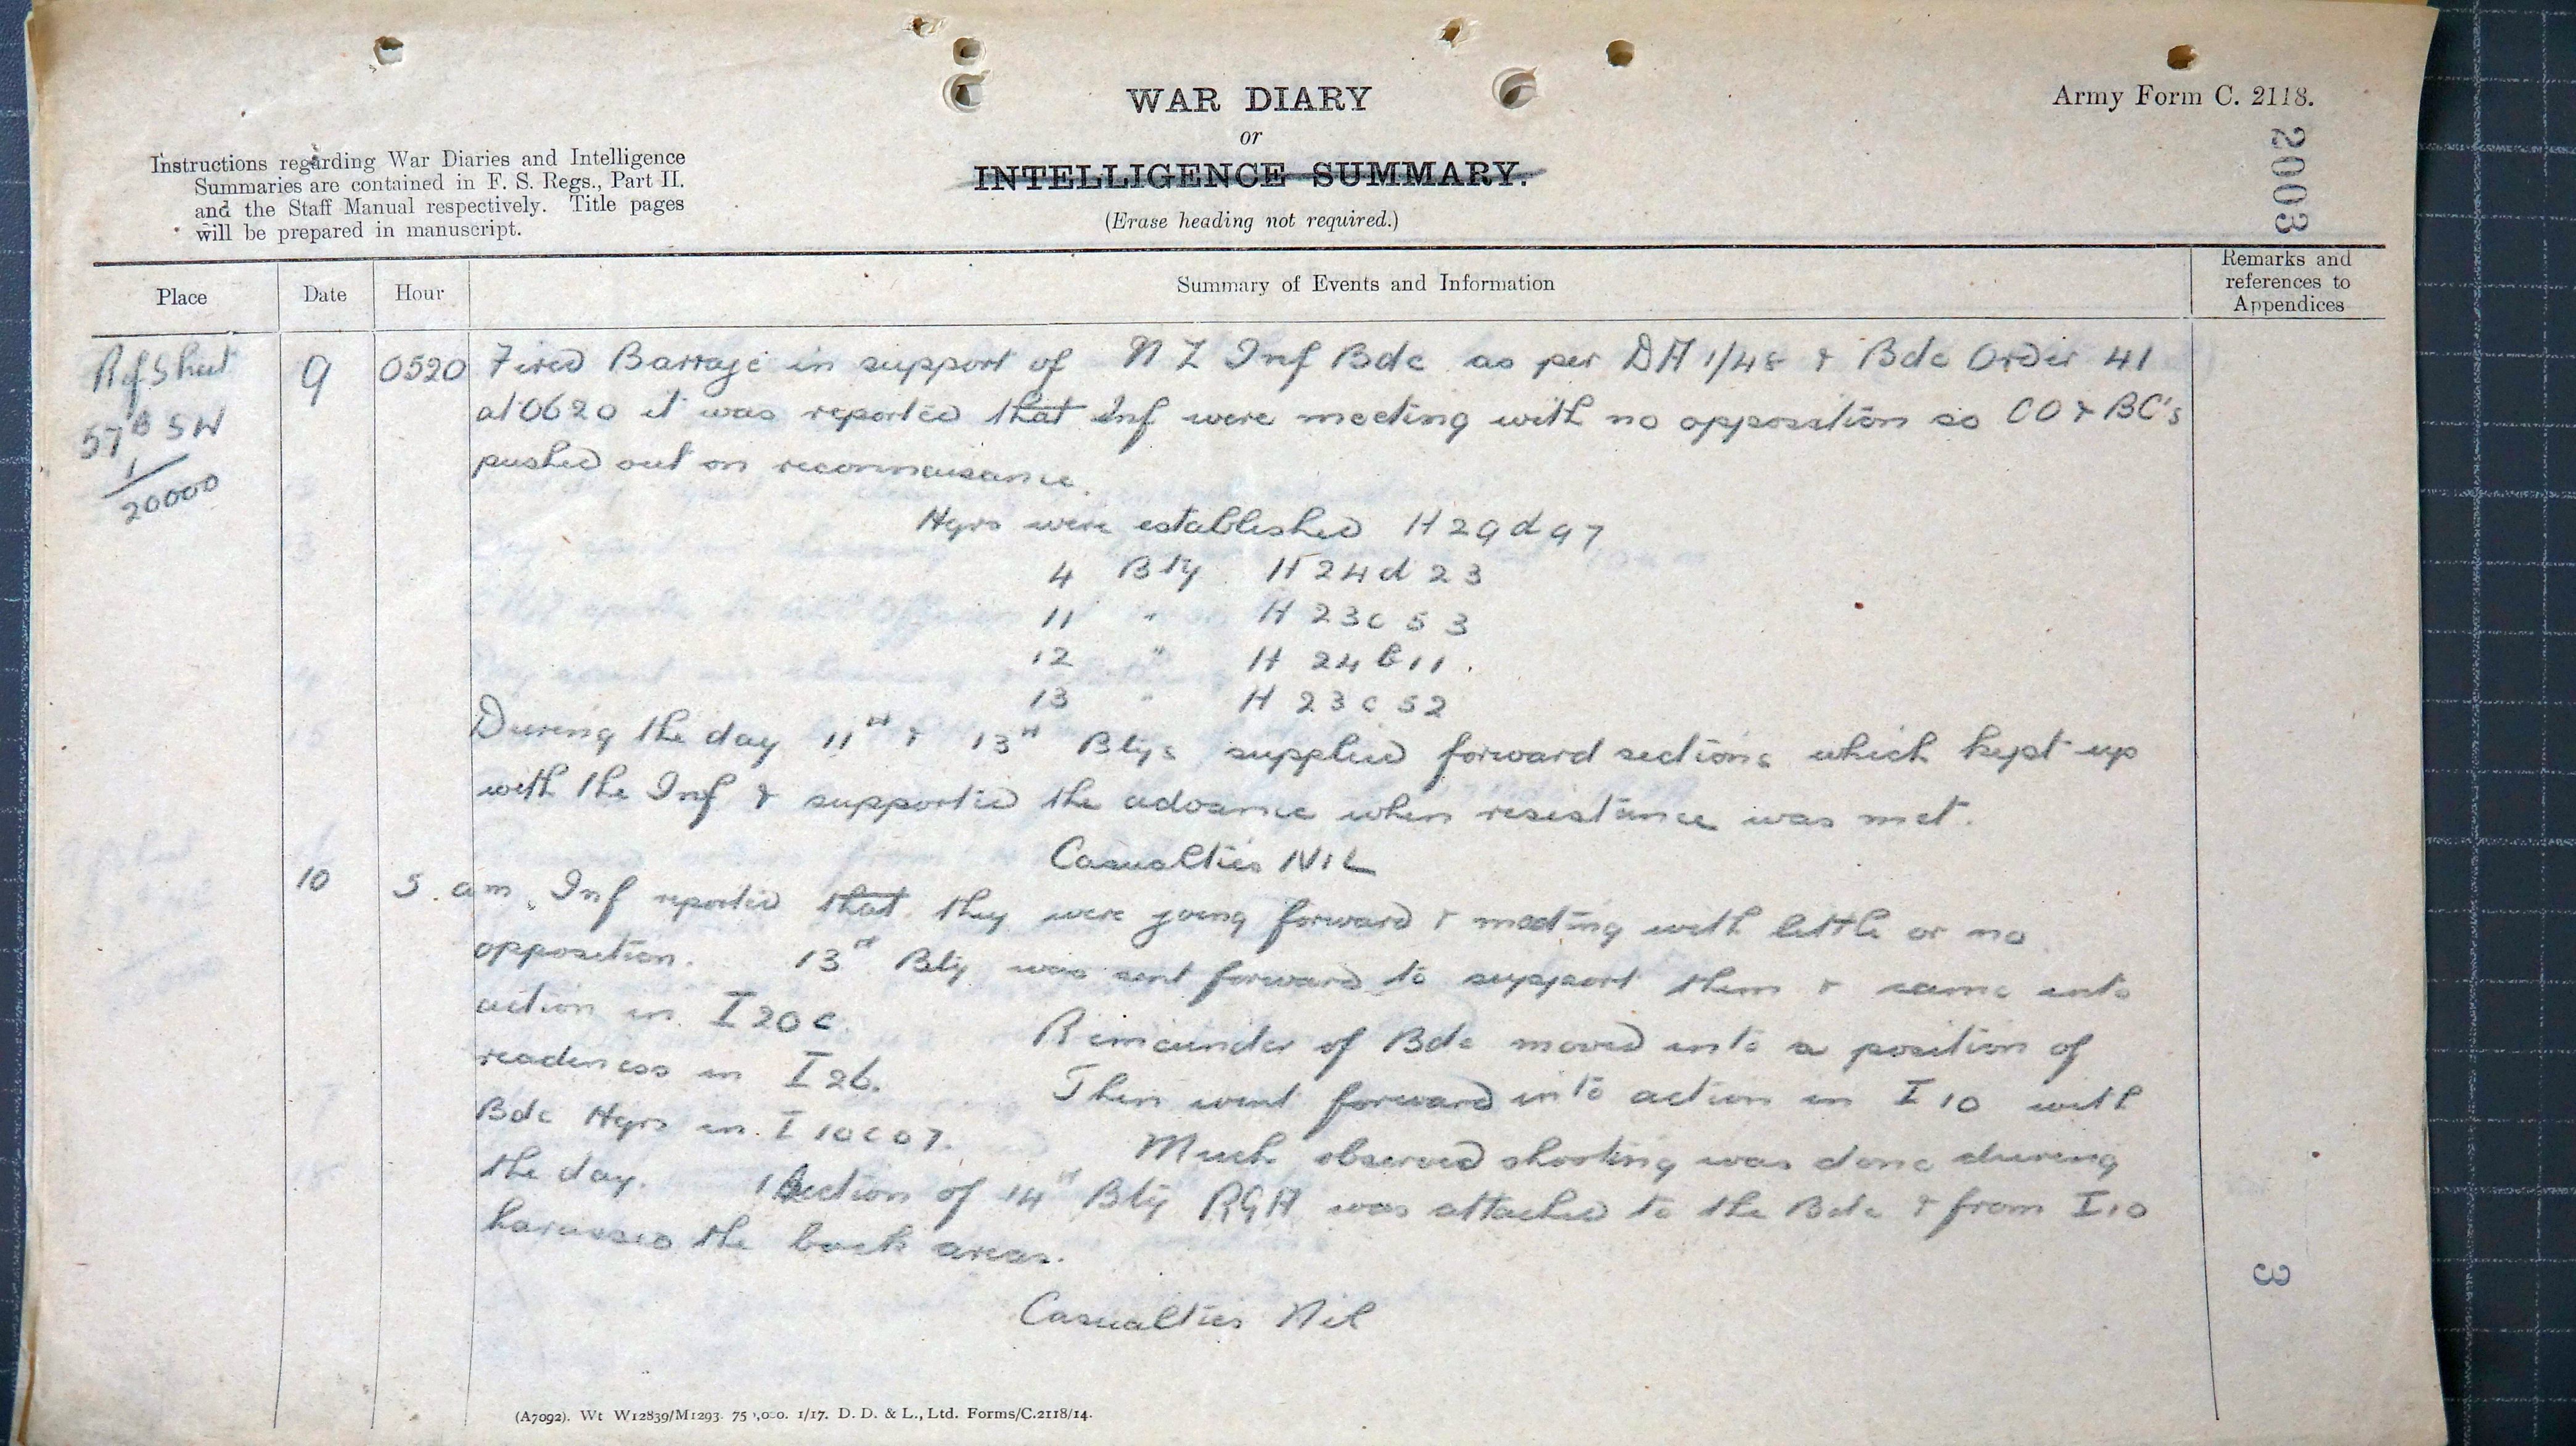 WAR DIARY
or
INTELLIGENCE SUMMARY.
(Erase heading not required.)
Army Form C. 2118.
2003
Instructions regarding War Diaries and Intelligence
Summaries are contained in F. S. Regs., Part II.
and the Staff Manual respectively. Title pages
will be prepared in manuscript.
Place Date Hour Summary of Events and Information Remarks and
references to
Appendices
Ref Sheet
57B SW
1/20000
9 0520 Fired Barrage in support of NZ Inf Bde as per DA 1/48 & Bde Order 41
at 0620 it was reported that Inf were meeting with no opposition so CO & BC's
pushed out on reconnaisance.
Hqrs were established H 29 d 97
4 Bty H 24 d 23
11 " H 23 c 53
12 " H 24 b 11.
13 " H 23 c 52
During the day 11th & 13th Btys supplied forward sections which kept up
with the Inf & supported the advance when resistance was met.
Casualties NIL
10 5 am. Inf reported that they were going forward & meeting with little or no
opposition. 13th Bty was sent forward to support them & came into
action in I 20 c. Remainder of Bde moved into a position of
readiness in I 26. Then went forward into action in I 10 with
Bde Hqrs in I 10 c 07. Much observed shooting was done during
the day. 1 Section of 14th Bty RGA was attached to the Bde & from I 10
harassed the back areas.
Casualties Nil
3
(A7092). Wt W12839/M1293. 75 ,000. 1/17. D. D. & L., Ltd. Forms/C.2118/14.